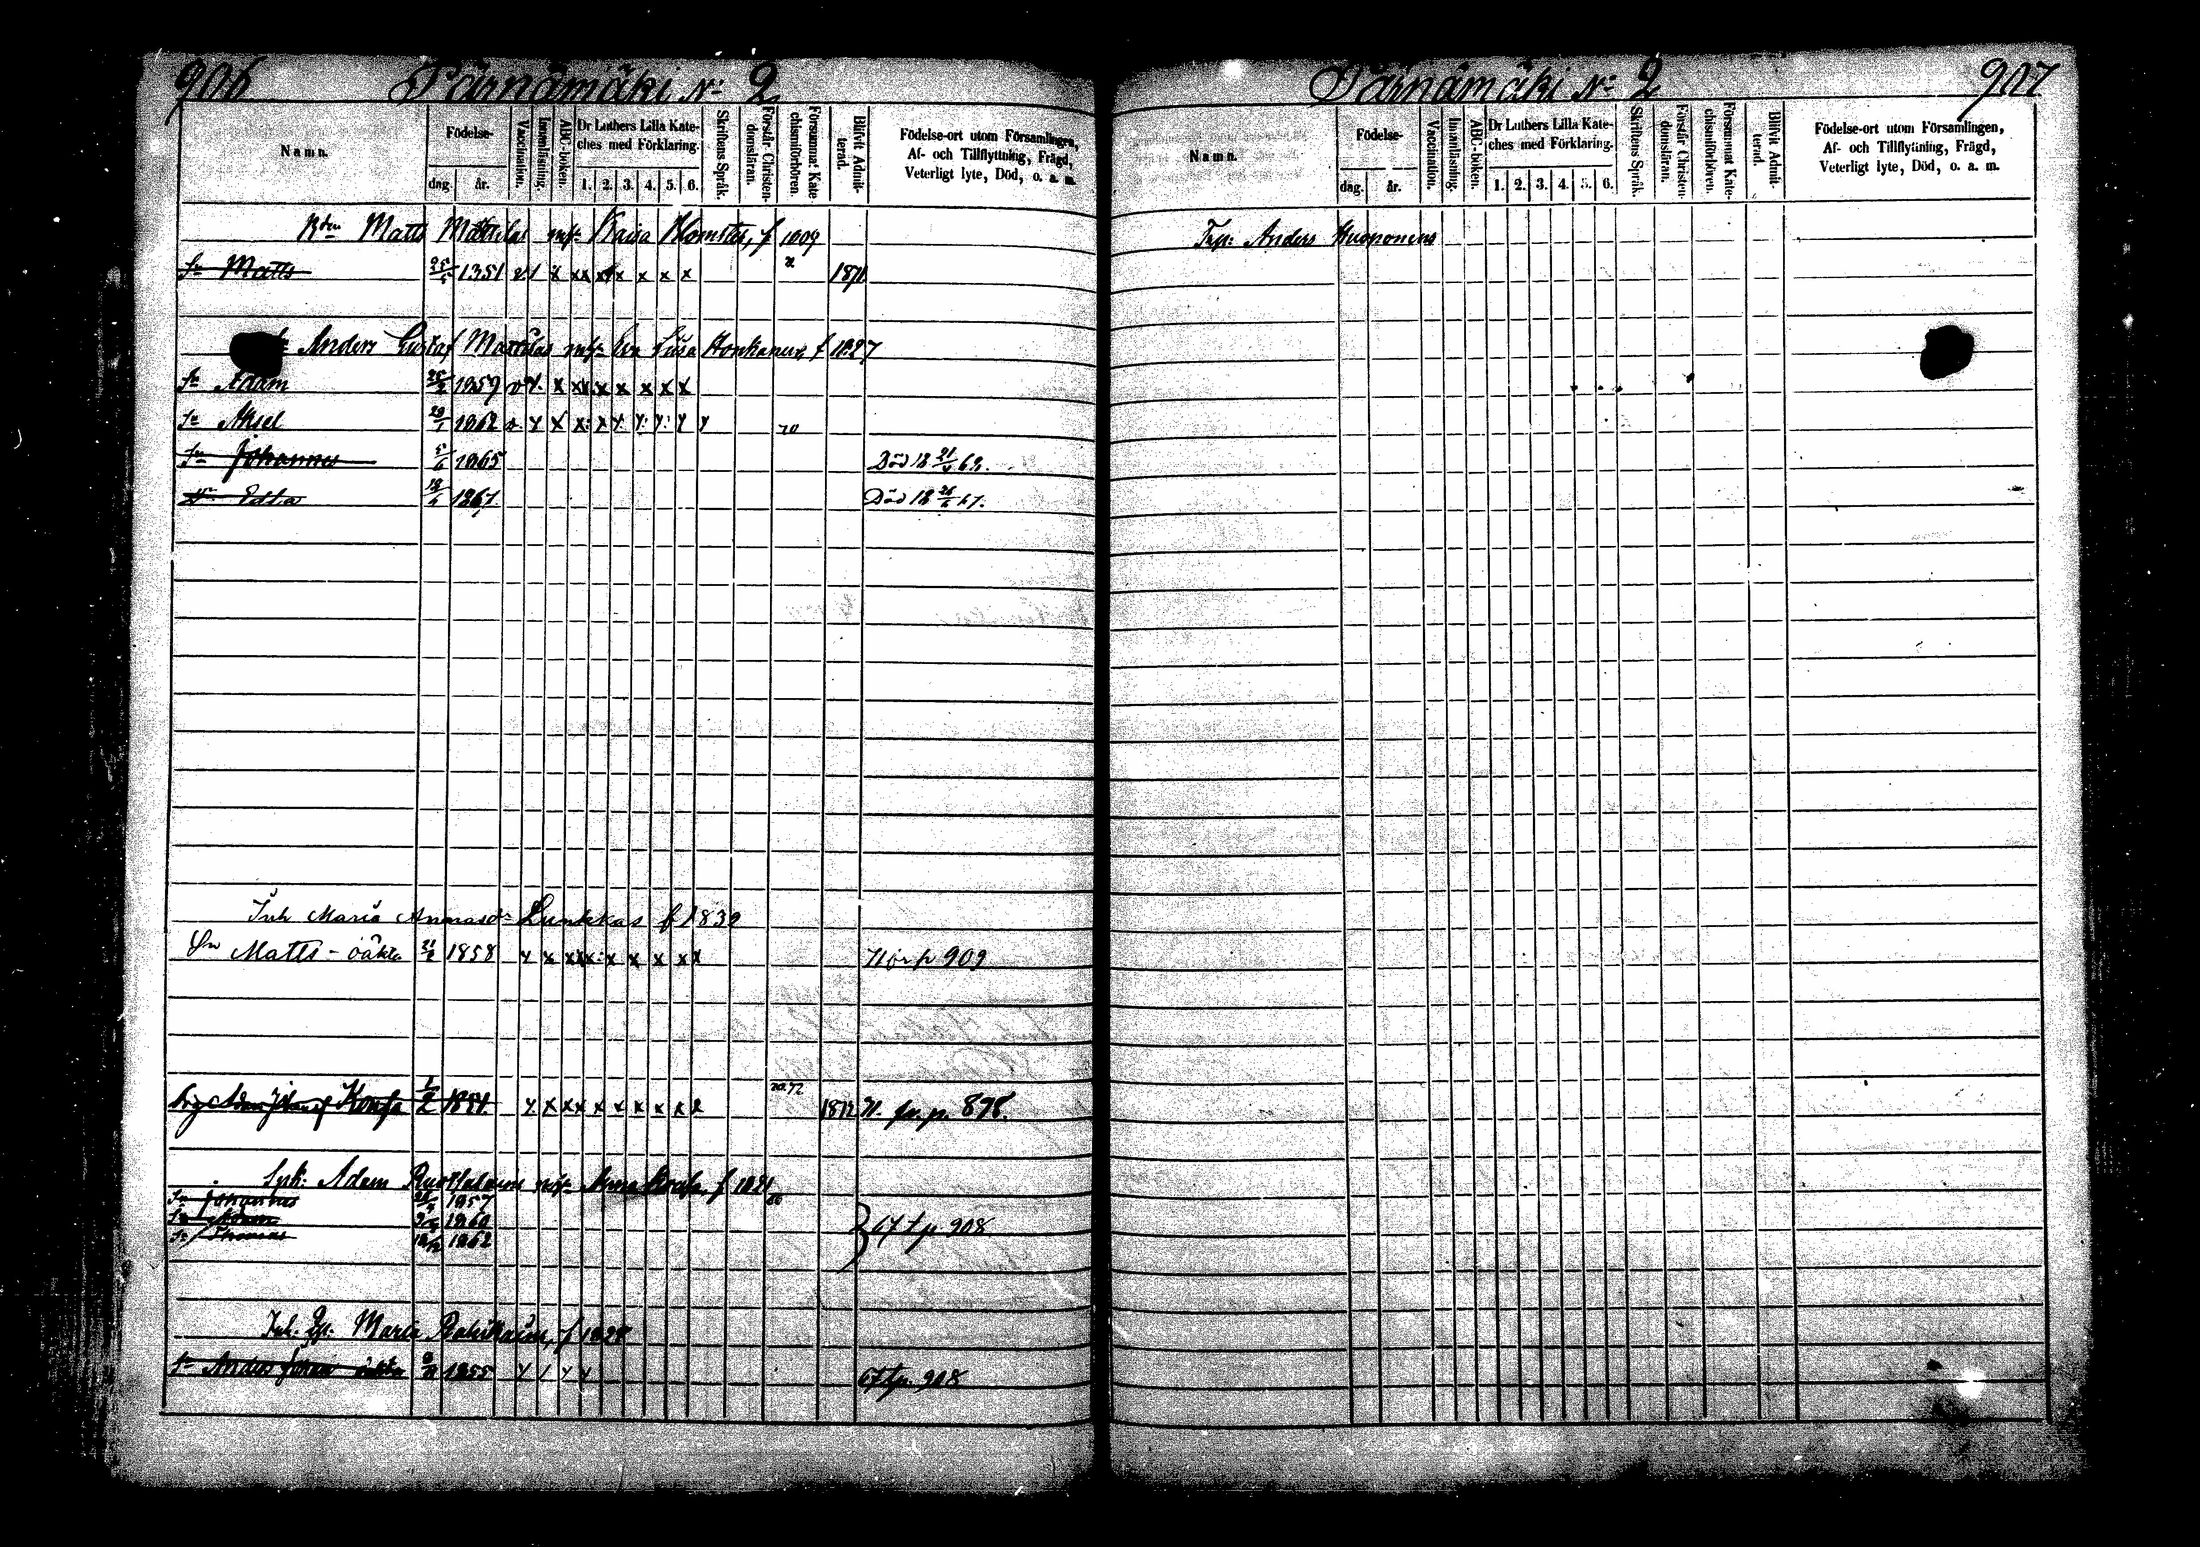 906 Pärnämäki No 2
Namn.
Födelse-
dag. år.
Vaccination.
Innanläsning.
ABC-boken.
Dr Luthers Lilla Kate-
ches med Förklaring.
1. 2. 3. 4. 5. 6.
Skriftens Språk.
Förstår Christen-
domsläran.
Försummat Kate-
chismiförhören.
Blifvit Admit-
terad.
Födelse-ort utom Församlingen,
Af- och Tillflyttning, Frägd,
Veterligt lyte, Död, o. a. m.
Matts Mattilas Kaisa f 1809
Sn Matts 25/ 1851 x x x x x x x 1871
Anders Gustaf Mattilas Eva Lisa Honkanen f 1827
Sn Adam 1859 x x x x x x x x
Sn Aksel 1862 x x x x
Sn Johannes 5/6 1865 Död 18 21/ 69.
Edla 1867 Död 18 67.
Inh Maria Annasdr Lunkkas f 1839
Sn Matts - oäkta 21/2 1858 x x x x x x x x x 71 fr p 909
Johan Konsa 1/2 1854 x x x x x x x x 72 1872 71. fr. p. 898.
Adam Ruottalainen Anna Konsa, f 1821
Sn Johannes 1857
Sn Adam 1860
Sn Thomas 1862
67 t p. 908
Inh. Maria f 1828
Sn Anders Johan oäkta 1855 67 t p. 908
Pärnämäki No 2 907
Namn.
Födelse-
dag. år.
Vaccination.
Innanläsning.
ABC-boken.
Dr Luthers Lilla Kate-
ches med Förklaring.
1. 2. 3. 4. 5. 6.
Skriftens Språk.
Förstår Christen-
domsläran.
Försummat Kate-
chismiförhören.
Blifvit Admit-
terad.
Födelse-ort utom Församlingen,
Af- och Tillflyttning, Frägd,
Veterligt lyte, Död, o. a. m.
Anders Huoponens